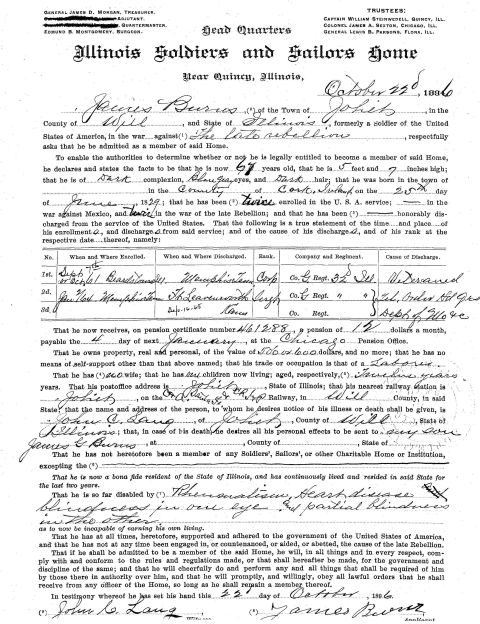 GENERAL JAMES D. MORGAN, TREASURER.
ADJUTANT.
QUARTERMASTER.
EDMUND B. MONTGOMERY, SURGEON.
TRUSTEES:
CAPTAIN WILLIAM STEINWEDELL, QUINCY, ILL.
COLONEL JAMES A. SEXTON, CHICAGO, ILL.
GENERAL LEWIS B. PARSONS, FLORA, ILL.
Head Quarters
Illinois Soldiers and Sailors Home
Near Quincy, Illinois,
October 22d, 1886
James Burns, (¹) of the Town of Joliet, in the
County of Will, and State of Illinois, formerly a Soldier of the United
States of America, in the war against (²) The late rebellion, respectfully
asks that he be admitted as a member of said Home.
To enable the authorities to determine whether or not he is legally entitled to become a member of said Home,
he declares and states the facts to be that he is now 57 years old, that he is 5 feet 7 inches high;
that he is of Dark complexion, eyes, and Dark hair; that he was born in the town of
in the County of Cork, Ireland on the 25th day
of June, 1829; that he has been (³) twice enrolled in the U. S. A. service; — in the
war against Mexico, and twice in the war of the late Rebellion; and that he has been (⁴) — honorably dis-
charged from the service of the United States. That the following is a true statement of the time and place of
his enrollments, and discharges from said service; and of the cause of his discharges, and of his rank at the
respective date thereof, namely:
No. When and Where Enrolled. When and Where Discharged. Rank. Company and Regiment. Cause of Discharge.
1st. Sept or Oct 61 Memphis Tenn Corp Co. G Regt. 32 Ill. Veteraned
2d. Jan 1/64 Memphis Tenn Ft Leavenworth Kans Sergt Co. G Regt. " " Tel. Order Hd Qrs
3d. Co. Regt. Dept of Mo &c
That he now receives, on pension certificate number 161288, a pension of 12 dollars a month,
payable the 4 day of next January, at the Chicago Pension Office.
That he owns property, real and personal, of the value of 500 or 600 dollars, and no more; that he has no
means of self-support other than that above named; that his trade or occupation is that of a Laborer
That he has (⁵) no wife; that he has children now living; aged, respectively, (⁶) Twelve years
years. That his postoffice address is Joliet, State of Illinois; that his nearest railway station is
Joliet, on the Railway, in Will County, in said
State; that the name and address of the person, to whom he desires notice of his illness or death shall be given, is
John C. Lang, of Joliet, County of Will, State of
Illinois; that, in case of his death, he desires all his personal effects to be sent to my son
James G Burns, at County of State of
That he has not heretofore been a member of any Soldiers', Sailors', or other Charitable Home or Institution,
excepting the (⁷)
That he is now a bona fide resident of the State of Illinois, and has continuously lived and resided in said State for
the last two years.
That he is so far disabled by (⁸) Rheumatism, Heart disease
blindness in one eye and partial blindness
in the other
as to now be incapable of earning his own living.
That he has at all times, heretofore, supported and adhered to the government of the United States of America,
and that he has not at any time been engaged in, or countenanced, or aided, or abetted, the cause of the late Rebellion.
That if he shall be admitted to be a member of the said Home, he will, in all things and in every respect, com-
ply with and conform to the rules and regulations made, or that shall hereafter be made, for the government and
discipline of the same; and that he will cheerfully do and perform any and all things that shall be required of him
by those there in authority over him, and that he will promptly, and willingly, obey all lawful orders that he shall
receive from any officer of the Home, so long as he shall remain a member thereof.
In testimony whereof he has set his hand this 22 day of October, 1886.
(⁹) John C Lang (⁹) James Burns
Applicant.